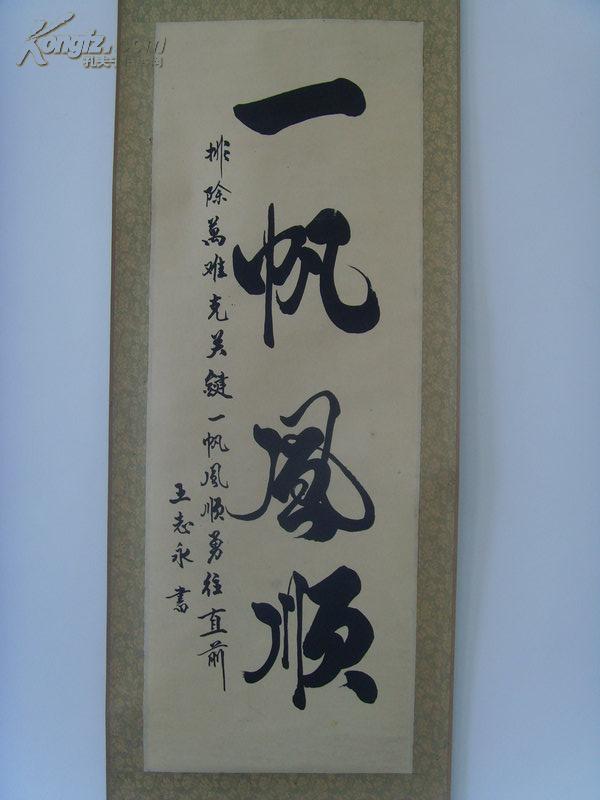 一帆風順
排除萬难克关鍵一帆風順勇往直前
王志永書
Kongfz.com